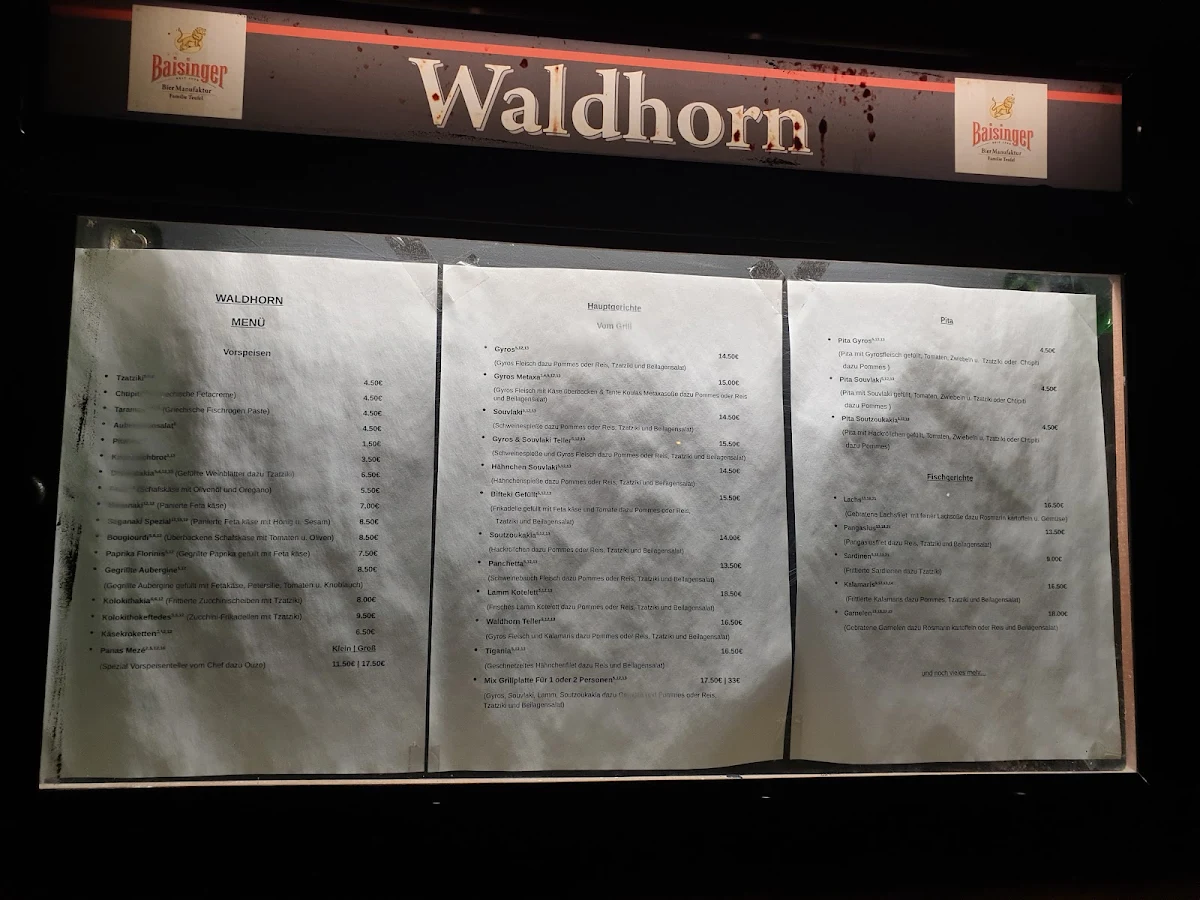 Baisinger
BierManufaktur
Familie Teufel
Waldhorn
Baisinger
BierManufaktur
Familie Teufel
WALDHORN
MENÜ
Vorspeisen
Tzatziki 4.50€
Fetacreme) 4.50€
(Griechische Fischrogen Paste) 4.50€
4.50€
1,50€
3,50€
(Gefüllte Weinblätter dazu Tzatziki) 6.50€
(Schafskäse mit Olivenöl und Oregano) 5.50€
(Panierte Feta käse) 7,00€
Saganaki Spezial (Panierte Feta käse mit Honig u. Sesam) 8.50€
Bougiourdi (Überbackene Schafskäse mit Tomaten u. Oliven) 8.50€
Paprika Florinis (Gegrillte Paprika gefüllt mit Feta käse) 7.50€
Gegrillte Aubergine 8.50€
(Gegrillte Aubergine gefüllt mit Fetakäse, Petersilie, Tomaten u. Knoblauch)
Kolokithakia (Fritierte Zucchinischeiben mit Tzatziki) 8.00€
Kolokithokeftedes (Zucchini-Frikadellen mit Tzatziki) 9.50€
Käsekroketten 6.50€
Panas Mezé Klein | Groß
(Spezial Vorspeisenteller vom Chef dazu Ouzo) 11.50€ | 17.50€
Hauptgerichte
Vom Grill
Gyros 14.50€
(Gyros Fleisch dazu Pommes oder Reis, Tzatziki und Beilagensalat)
Gyros Metaxa 15.00€
(Gyros Fleisch mit Käse überbacken & Tente Koulas Metaxasoße dazu Pommes oder Reis
und Beilagensalat)
Souvlaki 14.50€
(Schweinespieße dazu Pommes oder Reis, Tzatziki und Beilagensalat)
Gyros & Souvlaki Teller 15.50€
(Schweinespieße und Gyros Fleisch dazu Pommes oder Reis, Tzatziki und Beilagensalat)
Hähnchen Souvlaki 14.50€
(Hähnchenspieße dazu Pommes oder Reis, Tzatziki und Beilagensalat)
Bifteki Gefüllt 15.50€
(Frikadelle gefüllt mit Feta käse und Tomate dazu Pommes oder Reis,
Tzatziki und Beilagensalat)
Soutzoukakia 14.00€
(Hackröllchen dazu Pommes oder Reis, Tzatziki und Beilagensalat)
Panchetta 13.50€
(Schweinebauch Fleisch dazu Pommes oder Reis, Tzatziki und Beilagensalat)
Lamm Kotelett 18.50€
(Frisches Lamm Kotelett dazu Pommes oder Reis, Tzatziki und Beilagensalat)
Waldhorn Teller 16.50€
(Gyros Fleisch und Kalamaris dazu Pommes oder Reis, Tzatziki und Beilagensalat)
Tigania 16.50€
(Geschnetzeltes Hähnchenfilet dazu Reis und Beilagensalat)
Mix Grillplatte Für 1 oder 2 Personen 17.50€ | 33€
(Gyros, Souvlaki, Lamm, Soutzoukakia dazu Pommes oder Reis,
Tzatziki und Beilagensalat)
Pita
Pita Gyros 4.50€
(Pita mit Gyrosfleisch gefüllt, Tomaten, Zwiebeln u. Tzatziki oder Chtipiti
dazu Pommes )
Pita Souvlaki 4.50€
(Pita mit Souvlaki gefüllt, Tomaten, Zwiebeln u. Tzatziki oder Chtipiti
dazu Pommes )
Pita Soutzoukakia 4.50€
(Pita mit Hackröllchen gefüllt, Tomaten, Zwiebeln u. Tzatziki oder Chtipiti
dazu Pommes)
Fischgerichte
Lachs 16.50€
(Gebratene Lachsfilet mit feiner Lachsoße dazu Rosmarin kartoffeln u. Gemüse)
Pangasius 13.50€
(Pangasiusfilet dazu Reis, Tzatziki und Beilagensalat)
Sardinen 9.00€
(Fritierte Sardienen dazu Tzatziki)
Kalamaris 16.50€
(Fritierte Kalamaris dazu Pommes, Tzatziki und Beilagensalat)
Garnelen 18.00€
(Gebratene Garnelen dazu Rosmarin kartoffeln oder Reis und Beilagensalat)
und noch vieles mehr...